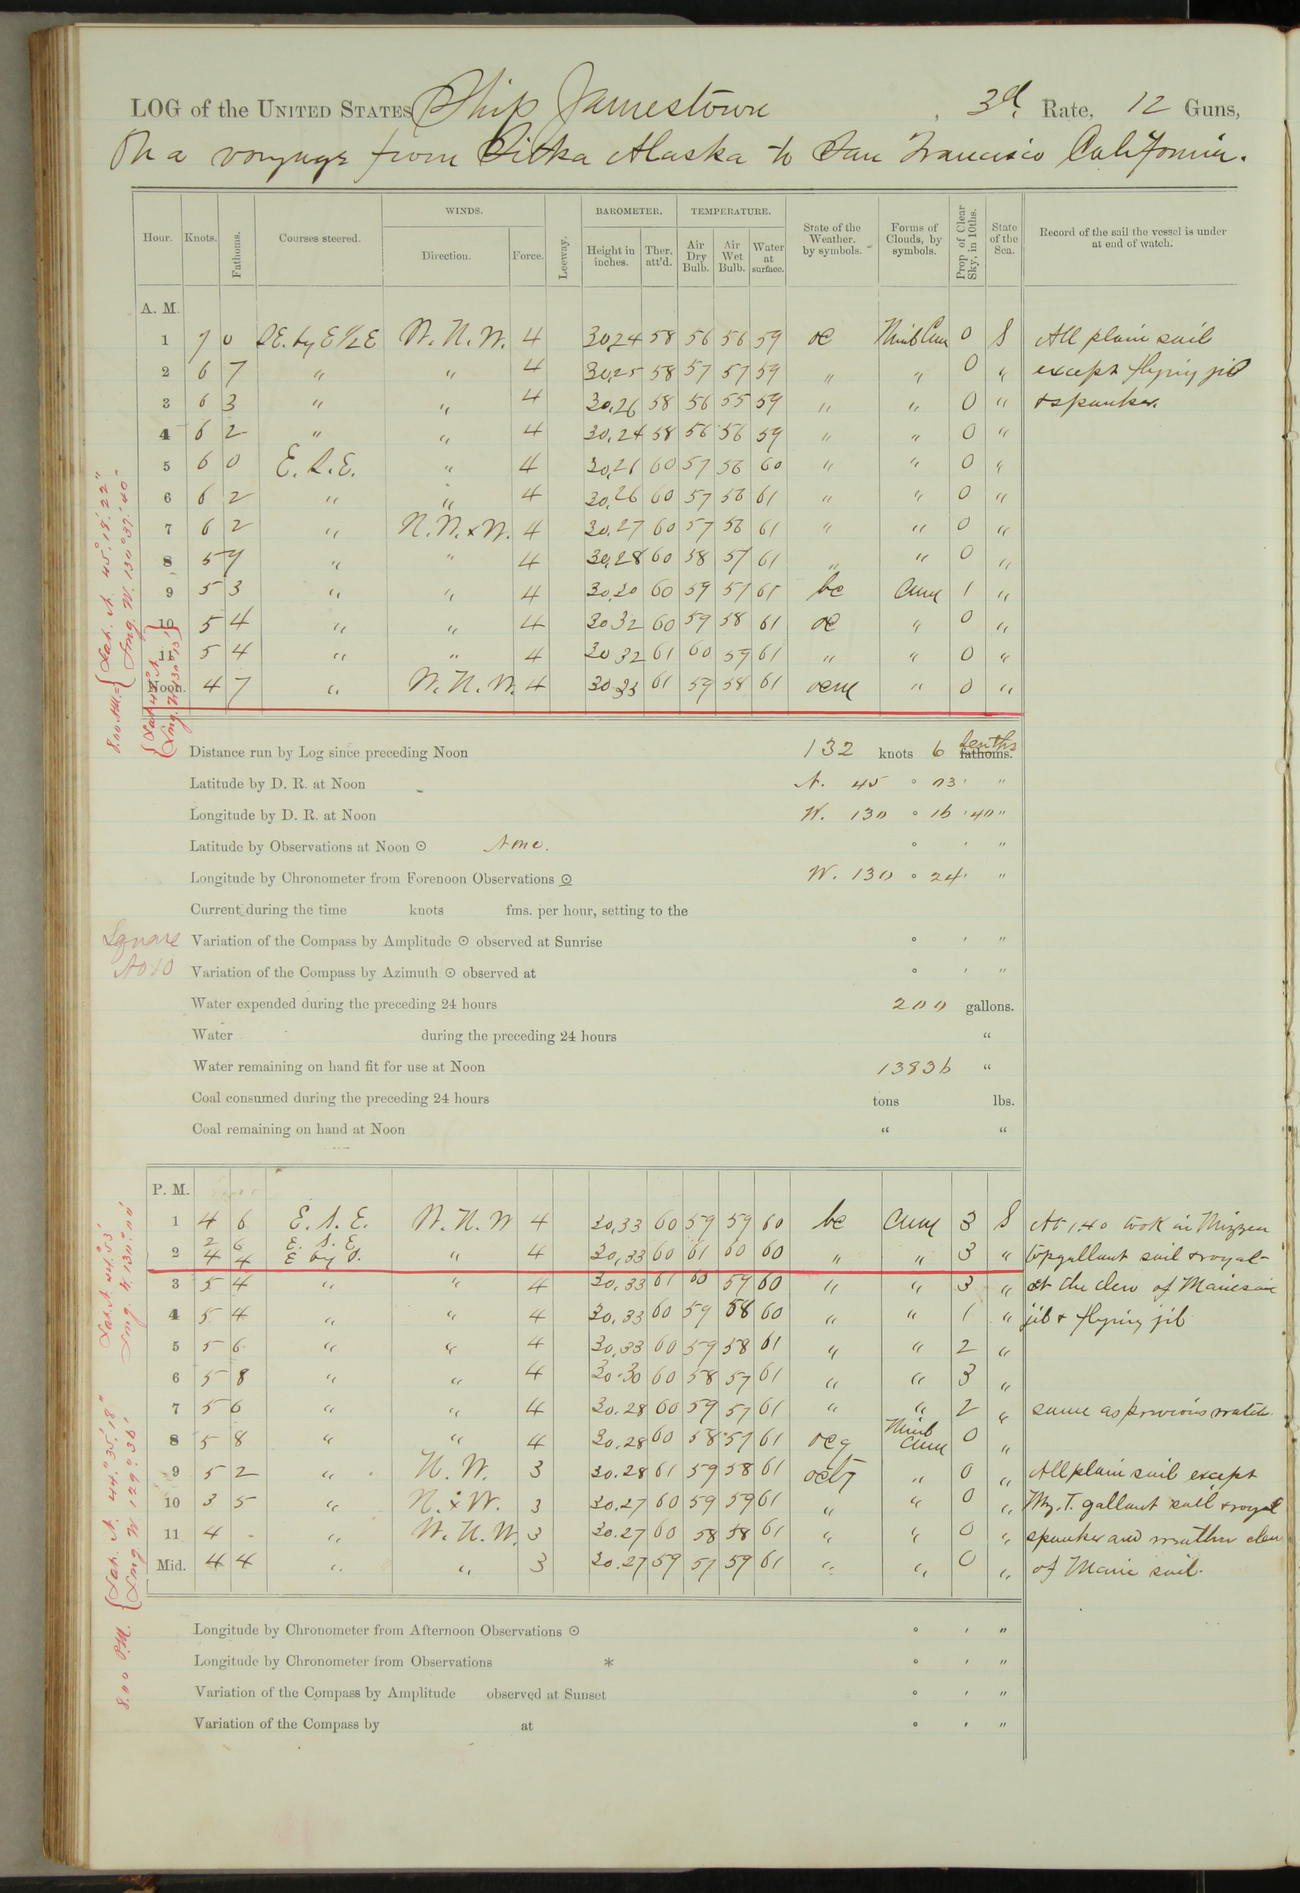 LOG of the UNITED STATES Ship Jamestown, 3d. Rate, 12 Guns,
On a voyage from Sitka Alaska to San Francisco California.
WINDS. BAROMETER. TEMPERATURE.
Hour. Knots. Fathoms. Courses steered. Direction. Force. Leeway. Height in inches. Ther. att'd. Air Dry Bulb. Air Wet Bulb. Water at surface. State of the Weather. by symbols. Forms of Clouds, by symbols. Prop of Clear Sky, in 10ths. State of the Sea. Record of the sail the vessel is under at end of watch.
A. M.
1 7 0 SE. by E 1/2 E W. N. W. 4 30,24 58 56 56 59 oc Nimb Cum 0 S All plain sail
2 6 7 " " 4 30,25 58 57 57 59 " " 0 " except flying jib
3 6 3 " " 4 30,26 58 56 55 59 " " 0 " & spanker.
4 6 2 " " 4 30,24 58 56 56 59 " " 0 "
5 6 0 E. S. E. " 4 60 57 56 60 " " 0 "
6 6 2 " " 4 30,26 60 57 56 61 " " 0 "
7 6 2 " N. W. x W. 4 30,27 60 57 56 61 " " 0 "
8 5 7 " " 4 30,28 60 58 57 61 " " 0 "
9 5 3 " " 4 60 59 57 bc Cum 1 "
10 5 4 " " 4 30 32 60 59 58 61 oc " 0 "
11 5 4 " " 4 30 32 61 60 59 61 " " 0 "
Noon. 4 7 " W. N. W. 4 30 33 61 59 58 61 ocm " 0 "
8.00 AM. = { Lat. N. 45° 18' 22"
Long. W. 130° 37' 40"
Distance run by Log since preceding Noon 132 knots 6 tenths fathoms.
Latitude by D. R. at Noon N. 45 ° 03 ' "
Longitude by D. R. at Noon W. 130 ° 16 ' 40 "
Latitude by Observations at Noon ⊙ None. ° ' "
Longitude by Chronometer from Forenoon Observations ⊙ W. 130 ° 24 ' "
Current during the time knots fms. per hour, setting to the
Square
No 10
Variation of the Compass by Amplitude ⊙ observed at Sunrise ° ' "
Variation of the Compass by Azimuth ⊙ observed at ° ' "
Water expended during the preceding 24 hours 200 gallons.
Water during the preceding 24 hours "
Water remaining on hand fit for use at Noon 13836 "
Coal consumed during the preceding 24 hours tons lbs.
Coal remaining on hand at Noon " "
P. M.
1 4 6 E. S. E. W. N. W 4 30,33 60 59 59 60 bc Cum 3 S At 1.40 took in Mizzen
2 2 6 E. S. E
4 4 E by S. " 4 30,33 60 61 60 60 " " 3 " topgallant sail & royal-
3 5 4 " " 4 30,33 61 60 59 60 " " 3 " at the clew of Mainsail
4 5 4 " " 4 30,33 60 59 58 60 " " 1 " jib & flying jib
5 5 6 " " 4 30,33 60 59 58 61 " " 2 "
6 5 8 " " 4 30.30 60 58 57 61 " " 3 "
7 5 6 " " 4 30.28 60 59 57 61 " " 2 " same as previous watch
8 5 8 " " 4 30.28 60 58 57 61 ocg Nimb Cum 0 "
9 5 2 " N. W. 3 30.28 61 59 58 61 " 0 " All plain sail except
10 3 5 " N. x W. 3 30.27 60 59 59 61 " " 0 " Mz. T. gallant sail & royal
11 4 - " W. N. W. 3 30.27 60 58 58 61 " " 0 " spanker and weather clew
Mid. 4 4 " " 3 30.27 59 57 59 61 " " 0 " of Main sail.
Lat. N 44° 53'
Long. W. 130° 00'
8.00 P.M. { Lat. N. 44° 35' 18"
Long. W 129° 36'
Longitude by Chronometer from Afternoon Observations ⊙ ° ' "
Longitude by Chronometer from Observations * ° ' "
Variation of the Compass by Amplitude observed at Sunset ° ' "
Variation of the Compass by at ° ' "